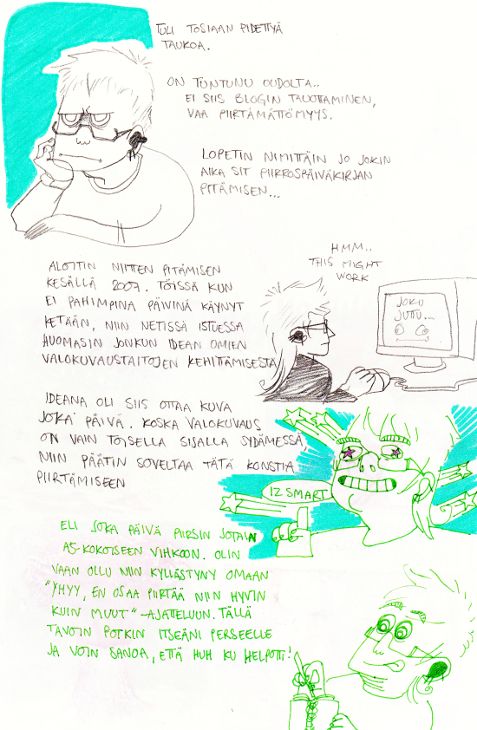 TULI TOSIAAN PIDETTYÄ
TAUKOA.
ON TUNTUNU OUDOLTA..
EI SIIS BLOGIN TAUOTTAMINEN,
VAA PIIRTÄMÄTTÖMYYS.
LOPETIN NIMITTÄIN JO JOKIN
AIKA SIT PIIRROSPÄIVÄKIRJAN
PITÄMISEN...
HMM..
THIS MIGHT
WORK
JOKU
JUTTU...
ALOITIN NIITTEN PITÄMISEN
KESÄLLÄ 2007. TÖISSÄ KUN
EI PAHIMPINA PÄIVINÄ KÄYNYT
KETÄÄN, NIIN NETISSÄ ISTUESSA
HUOMASIN JONKUN IDEAN OMIEN
VALOKUVAUSTAITOJEN KEHITTÄMISESTÄ
IDEANA OLI SIIS OTTAA KUVA
JOKA PÄIVÄ. KOSKA VALOKUVAUS
ON VAIN TOISELLA SIJALLA SYDÄMESSÄ,
NIIN PÄÄTIN SOVELTAA TÄTÄ KONSTIA
PIIRTÄMISEEN
IZ SMART
ELI JOKA PÄIVÄ PIIRSIN JOTAIN
A5-KOKOISEEN VIHKOON. OLIN
VAAN OLLU NIIN KYLLÄSTYNY OMAAN
"YHYY, EN OSAA PIIRTÄÄ NIIN HYVIN
KUIN MUUT" -AJATTELUUN. TÄLLÄ
TAVOIN POTKIN ITSEÄNI PERSEELLE
JA VOIN SANOA, ETTÄ HUH KU HELPOTTI!